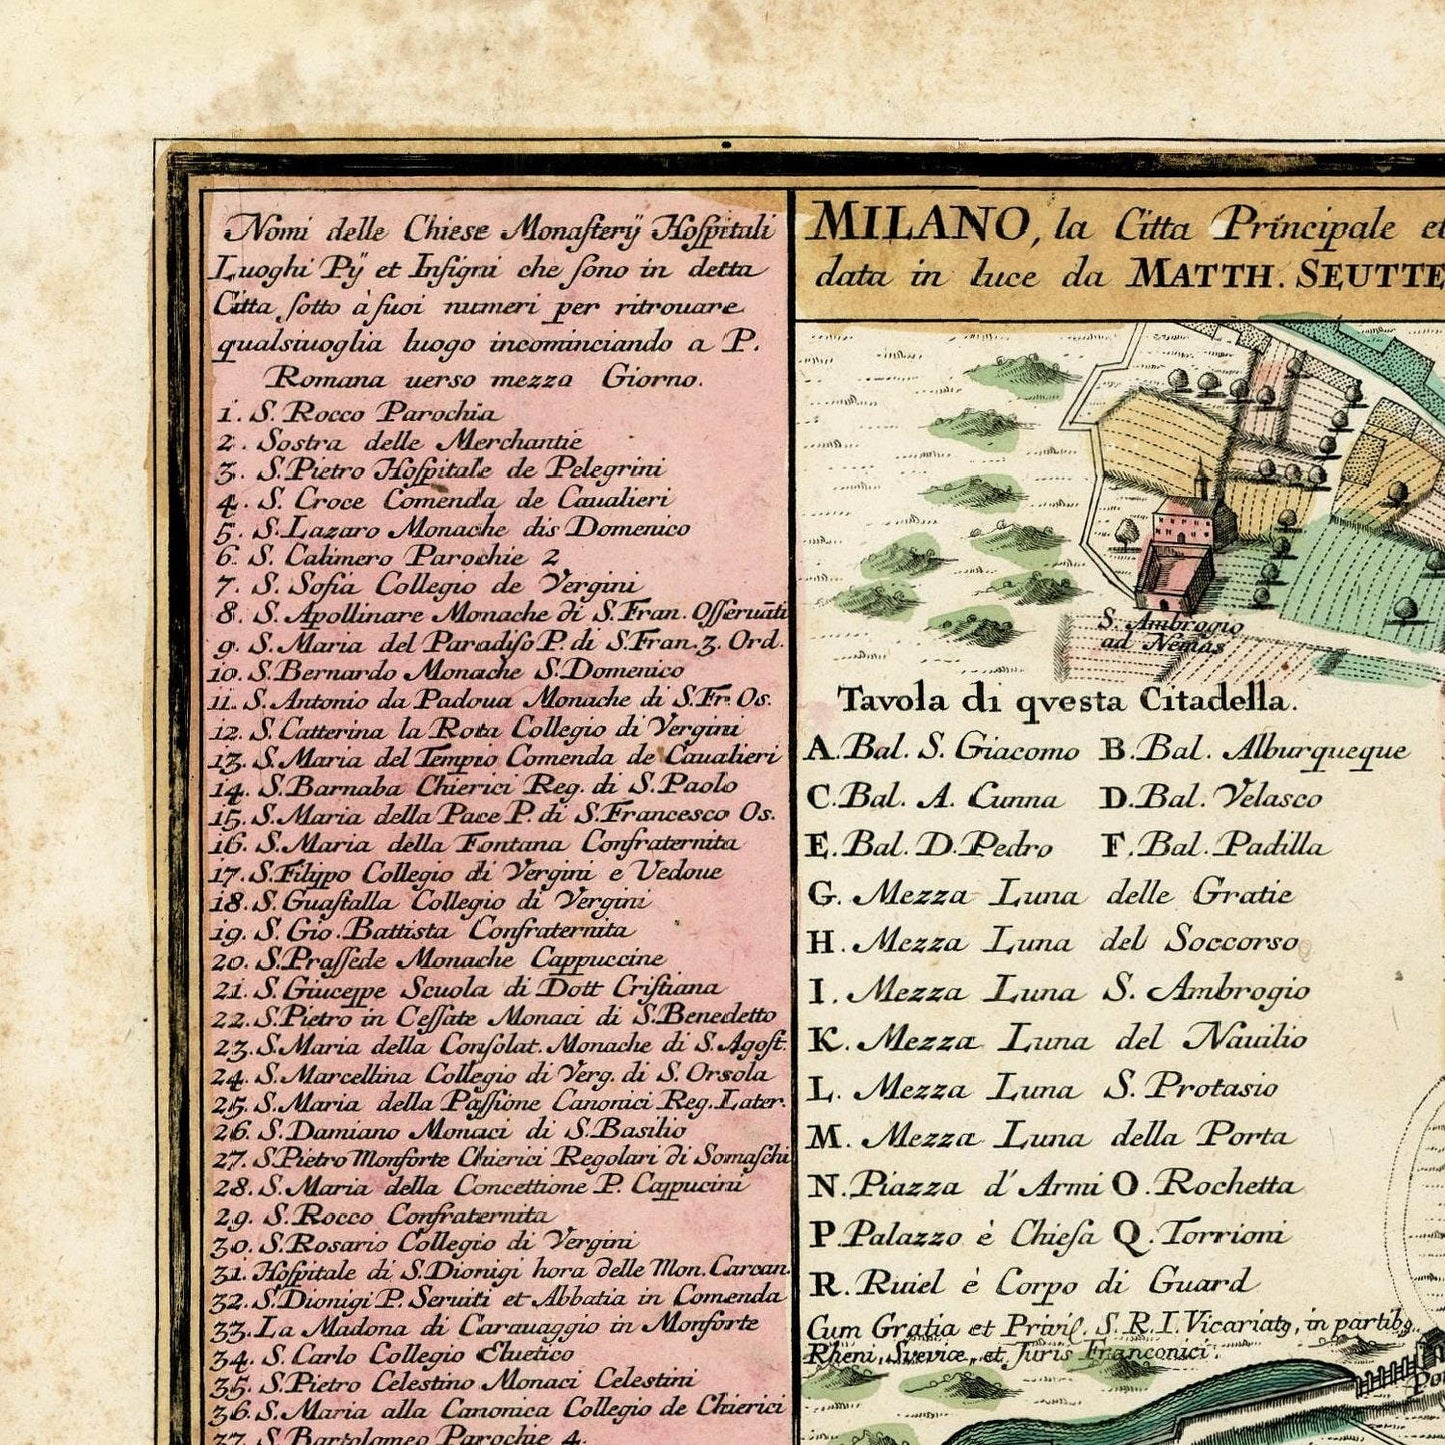 Nomi delle Chiese Monasterÿ Hospitali
Luoghi Pÿ et Insigni che sono in detta
Citta sotto à suoi numeri per ritrouare
qualsiuoglia luogo incominciando a P.
Romana uerso mezza Giorno.
1. S. Rocco Parochia
2. Sostra delle Merchantie
3. S. Pietro Hospitale de Pelegrini
4. S. Croce Comenda de Caualieri
5. S. Lazaro Monache dis Domenico
6. S. Calimero Parochie 2
7. S. Sofia Collegio de Vergini
8. S. Apollinare Monache di S. Fran. Osseruāti
9. S. Maria del Paradiso P. di S. Fran. 3. Ord.
10. S. Bernardo Monache S. Domenico
11. S. Antonio da Padoua Monache di S. Fr. Os.
12. S. Catterina la Rota Collegio di Vergini
13. S. Maria del Tempio Comenda de Caualieri
14. S. Barnaba Chierici Reg. di S. Paolo
15. S. Maria della Pace P. di S. Francesco Os.
16. S. Maria della Fontana Confraternita
17. S. Filippo Collegio di Vergini e Vedoue
18. S. Guastalla Collegio di Vergini
19. S. Gio. Battista Confraternita
20. S. Prassede Monache Cappuccine
21. S. Giuceppe Scuola di Dott Cristiana
22. S. Pietro in Cessate Monaci di S. Benedetto
23. S. Maria della Consolat. Monache di S. Agost.
24. S. Marcellina Collegio di Verg. di S. Orsola
25. S. Maria della Passione Canonici Reg. Later.
26. S. Damiano Monaci di S. Basilio
27. S. Pietro Monforte Chierici Regolari di Somaschi
28. S. Maria della Concettione P. Cappucini
29. S. Rocco Confraternita
30. S. Rosario Collegio di Vergini
31. Hospitale di S. Dionigi hora delle Mon. Carcan.
32. S. Dionigi P. Seruiti et Abbatia in Comenda
33. La Madona di Carauaggio in Monforte
34. S. Carlo Collegio Eluetico
35. S. Pietro Celestino Monaci Celestini
36. S. Maria alla Canonica Collegio de Chierici
37. S. Bartolomeo Parochie 4.
MILANO, la Citta Principale et
data in luce da MATTH. SEUTTE
S. Ambrogio
ad Nemas
Tavola di qvesta Citadella.
A. Bal. S. Giacomo B. Bal. Alburqueque
C. Bal. A. Cunna D. Bal. Velasco
E. Bal. D. Pedro F. Bal. Padilla
G. Mezza Luna delle Gratie
H. Mezza Luna del Soccorso
I. Mezza Luna S. Ambrogio
K. Mezza Luna del Nauilio
L. Mezza Luna S. Protasio
M. Mezza Luna della Porta
N. Piazza d'Armi O. Rochetta
P. Palazzo è Chiesa Q. Torrioni
R. Ruiel è Corpo di Guard
Cum Gratia et Privil. S. R. I. Vicariatꝰ, in partibꝰ
Rheni, Sveviæ, et Juris Franconici.